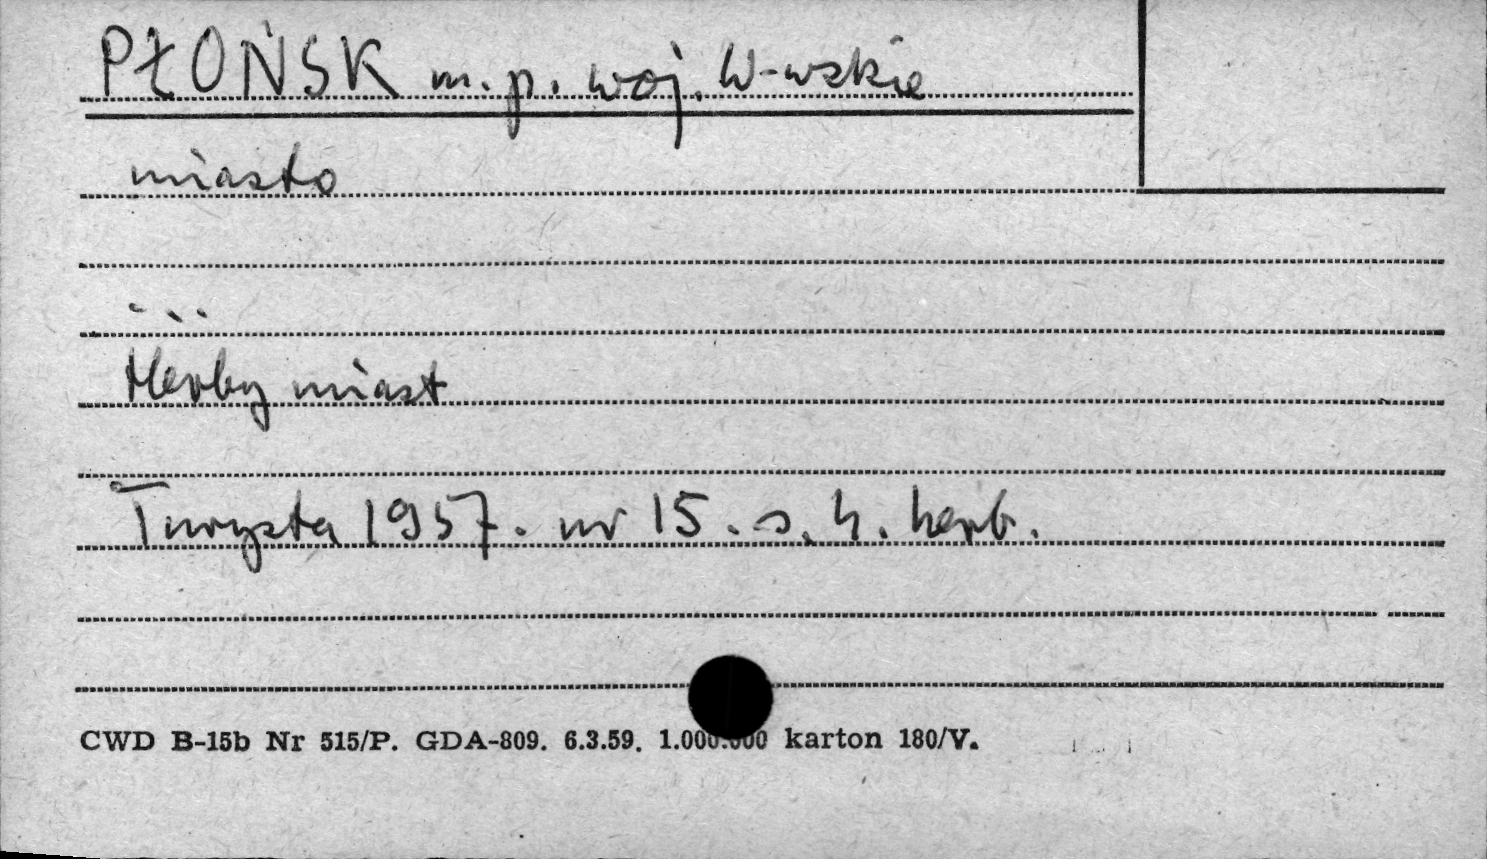 PŁOŃSK m. p. woj. W-wskie
miasto
...
Herby miast
Turysta 1957. nr 15. s. 4. herb.
CWD B-15b Nr 515/P. GDA-809. 6.3.59. 1.000.000 karton 180/V.